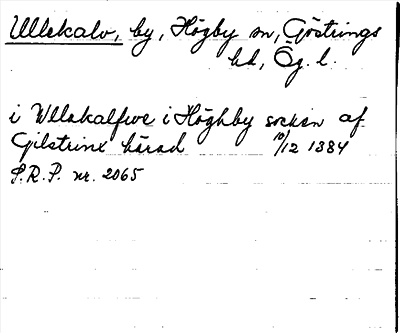 Ullekalv, by, Högby sn, Göstrings
hd, Ög. l.
i Wllakalfwe i Höghby sockin af
Gilstrine härad 10/12 1384
S.R.P. nr. 2065